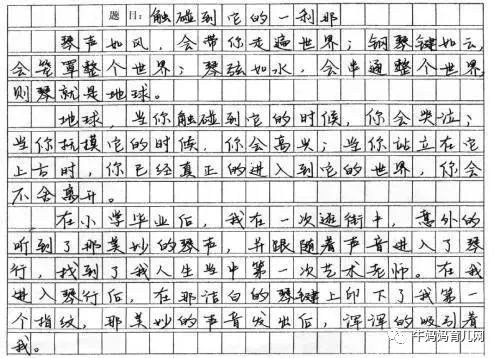 题 目：触碰到它的一刹那
琴声如风，会带你走遍世界；钢琴键如云，
会笼罩整个世界；琴弦如水，会串通整个世界，
则琴就是地球。
地球，当你触碰到它的时候，你会哭泣；
当你抚摸它的时候，你会高兴；当你站立在它
上古时，你已经真正的进入到它的世界，你会
不舍离开。
在小学毕业后，我在一次逛街中，意外的
听到了那美妙的琴声，并跟随着声音进入了琴
行，找到了我人生当中第一次艺术老师。在我
进入琴行后，在那洁白的琴键上印下了我第一
个指纹，那美妙的声音发出后，深深的吸引着
我。
牛妈妈育儿网